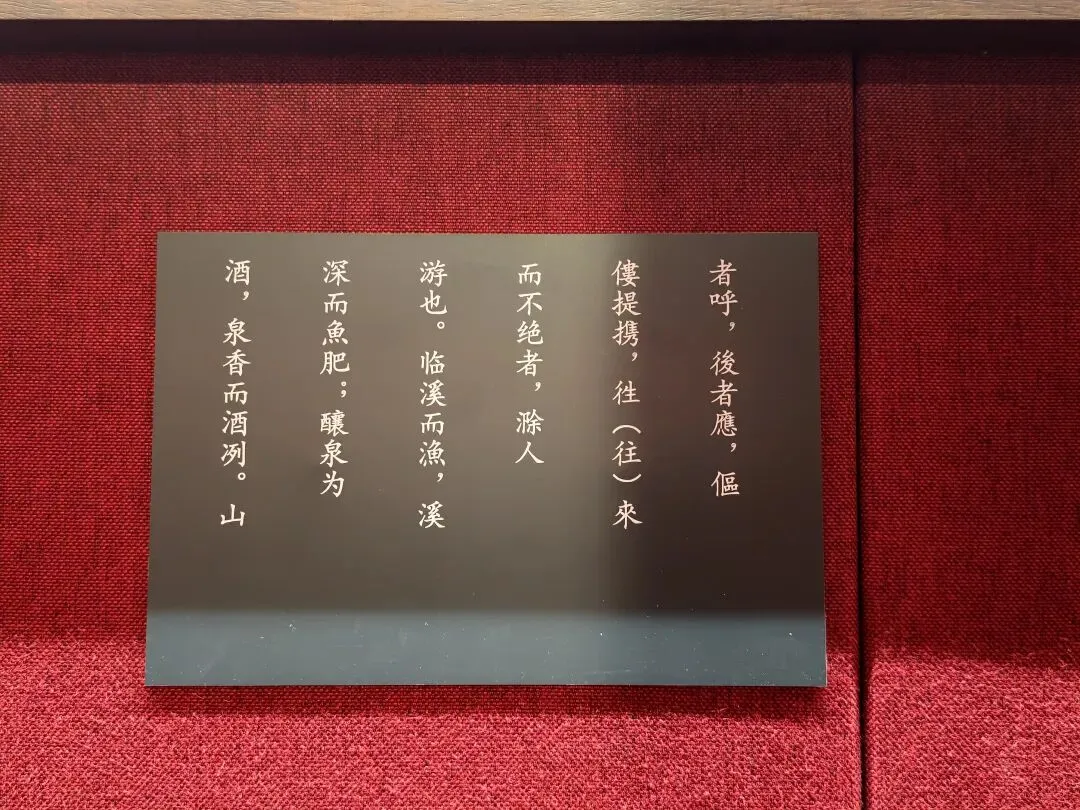 者呼，後者應，傴
僂提携，徃（往）來
而不绝者，滁人
游也。临溪而漁，溪
深而魚肥；釀泉为
酒，泉香而酒冽。山